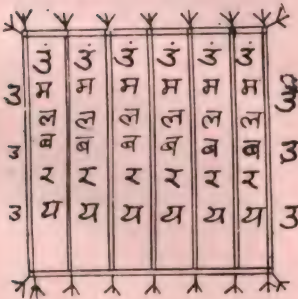 उं उं उं उं उं उं
उ म म म म म म
ल ल ल ल ल ल
उ ब ब ब ब ब ब उ
र र र र र र
उ य य य य य य उ